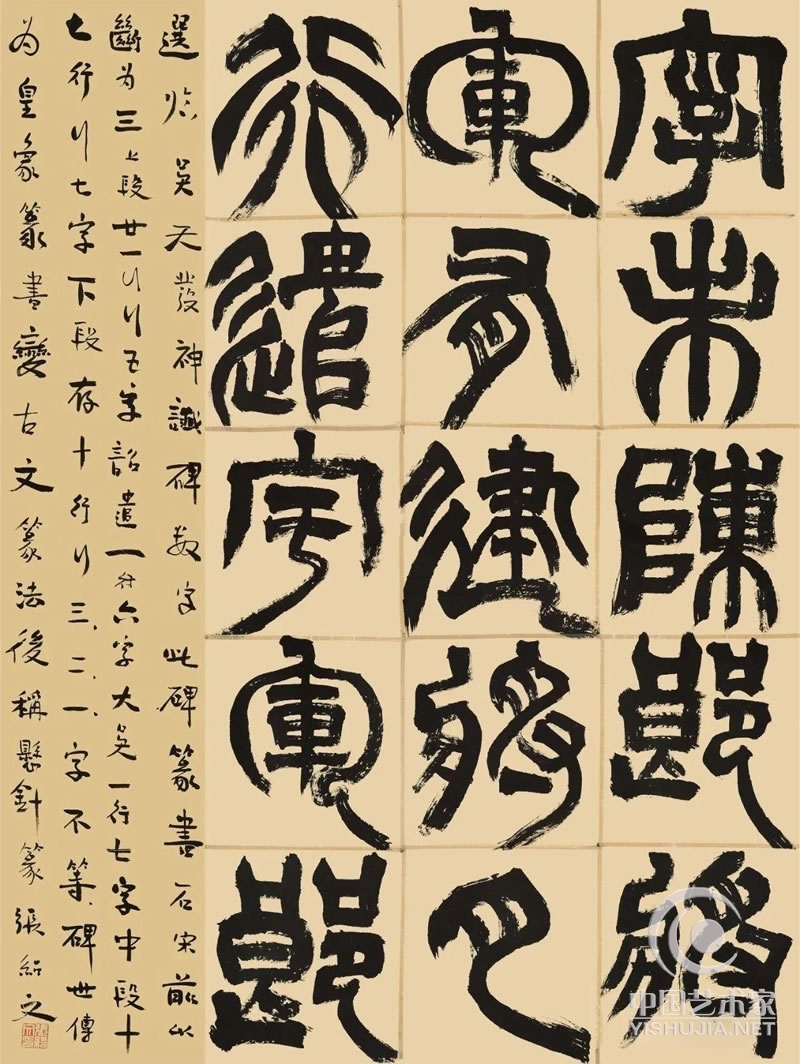 陳郎將
軍建將
行遣宇軍郎
選臨吳天發神讖碑數字此碑篆書石宋前以
斷为三上段廿一行行五字詔遣一行六字大吳一行七字中段十
七行行七字下段存十行行三、二、一、字不等、碑世傳
为皇象篆書變古文篆法後稱懸針篆張紹文
中国艺术家
YISHUJIA.NET